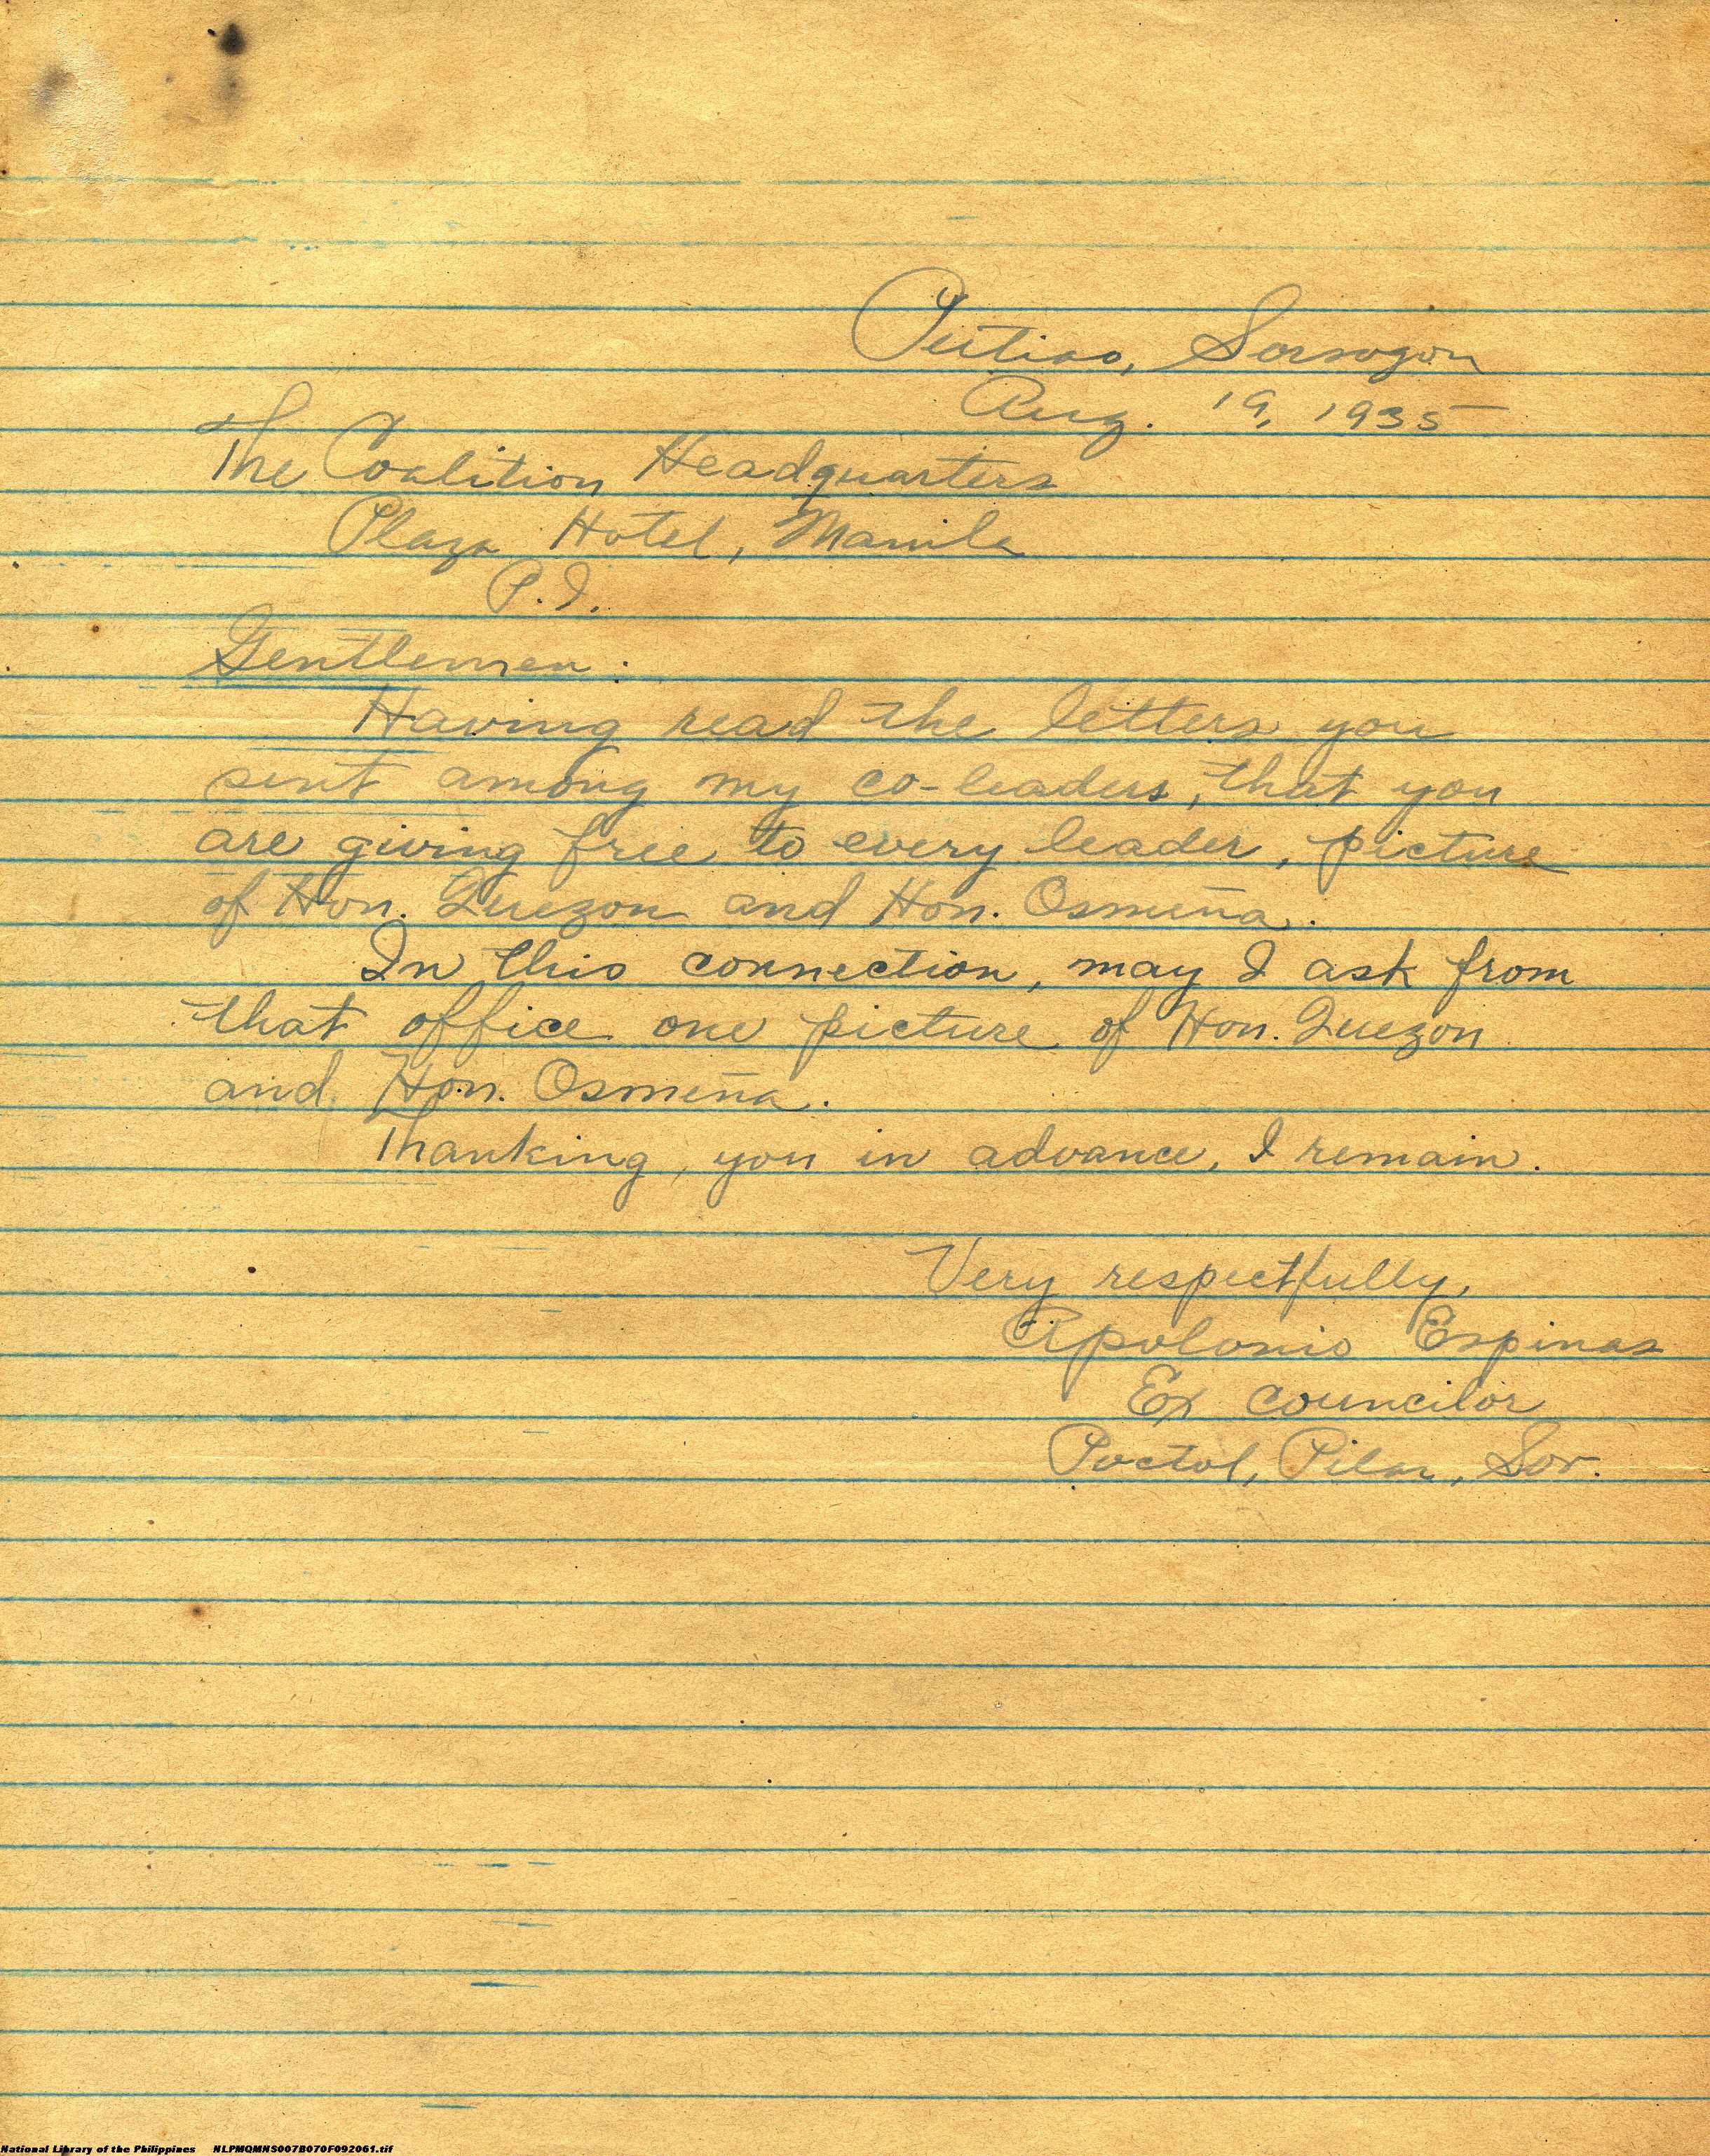 Putiao, Sorsogon
Aug. 19, 1935
The Coalition Headquarters
Plaza Hotel, Manila
P.I.
Gentlemen:
Having read the letters you
sent among my co-leaders, that you
are giving free to every leader, picture
of Hon. Quezon and Hon. Osmeña.
In this connection, may I ask from
that office one picture of Hon. Quezon
and Hon. Osmeña.
Thanking, you in advance, I remain.
Very respectfully,
Apolonio Espinas
Ex councilor
Poctol, Pilar, Sor.
National Library of the Philippines NLPMQMNS007B070F092061.tif